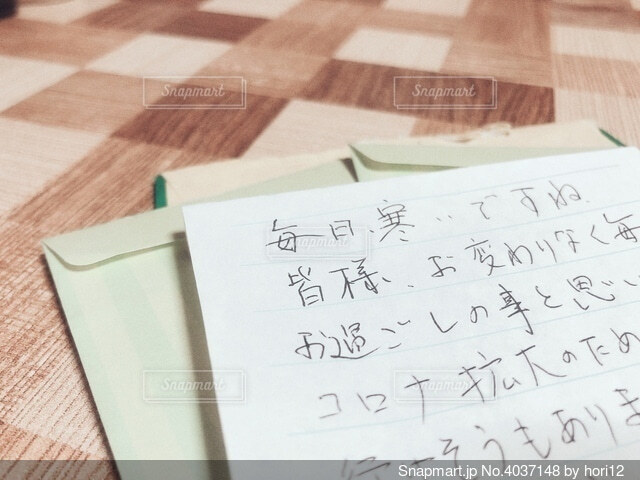 毎日、寒いですね。
皆様、お変わりなく毎
お過ごしの事と思い
コロナ拡大のため
そうもありま
Snapmart
Snapmart
Snapmart
Snapmart
Snapmart
Snapmart.jp No.4037148 by hori12